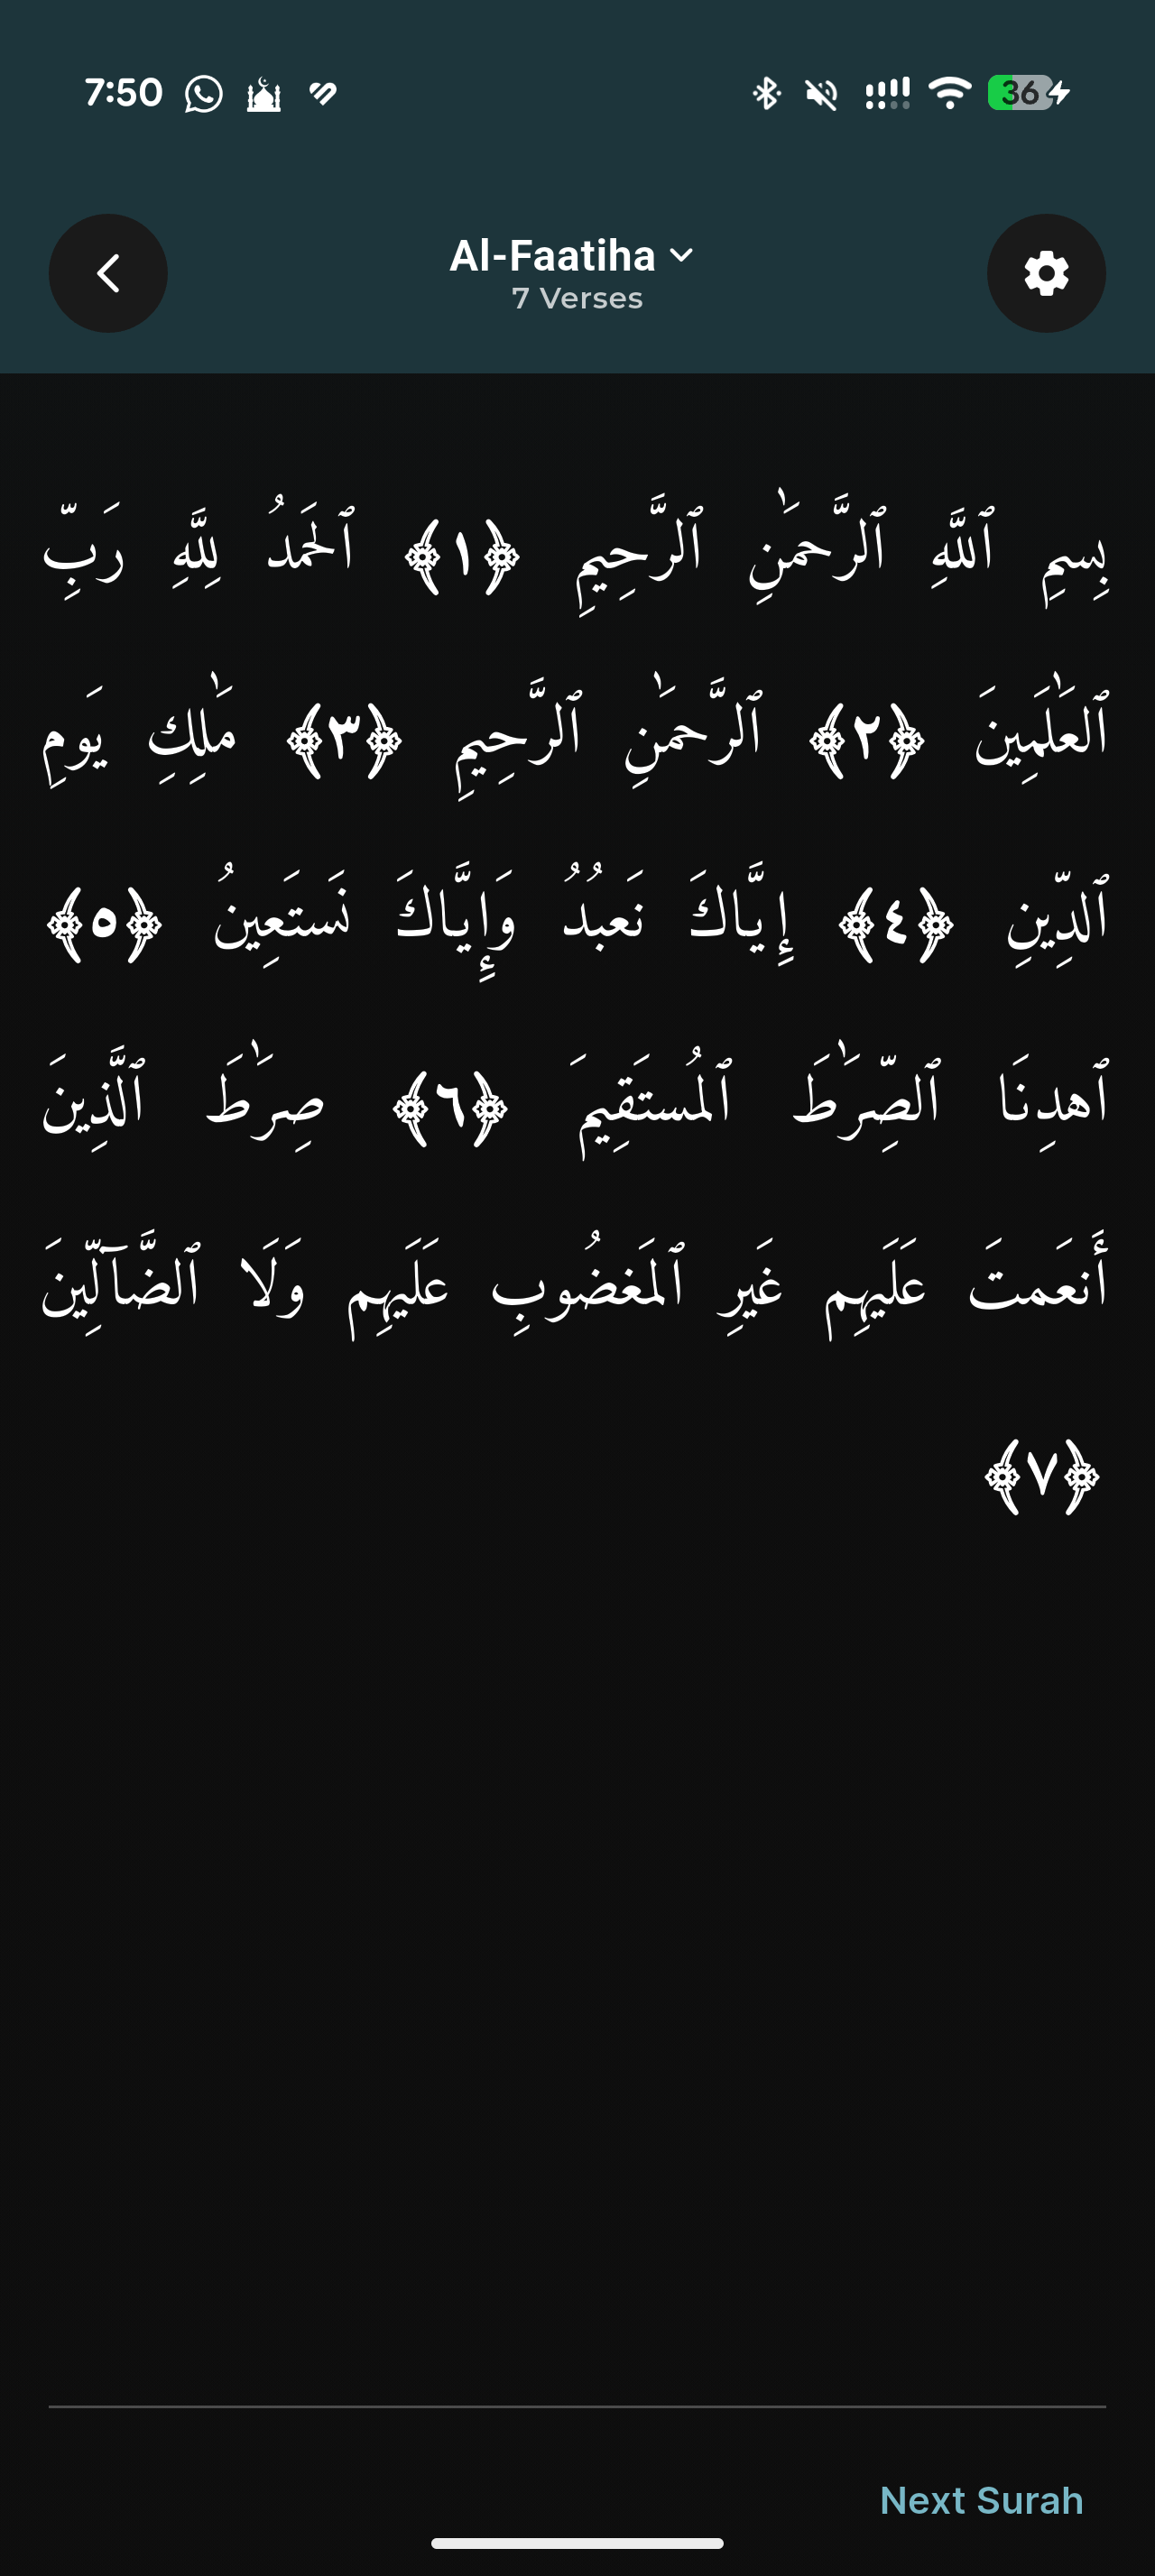 7:50
36
Al-Faatiha
7 Verses
بِسمِ ٱللَّهِ ٱلرَّحمَٰنِ ٱلرَّحِيمِ ﴿١﴾ ٱلحَمدُ لِلَّهِ رَبِّ
ٱلعَٰلَمِينَ ﴿٢﴾ ٱلرَّحمَٰنِ ٱلرَّحِيمِ ﴿٣﴾ مَٰلِكِ يَومِ
ٱلدِّينِ ﴿٤﴾ إِيَّاكَ نَعبُدُ وَإِيَّاكَ نَستَعِينُ ﴿٥﴾
ٱهدِنَا ٱلصِّرَٰطَ ٱلمُستَقِيمَ ﴿٦﴾ صِرَٰطَ ٱلَّذِينَ
أَنعَمتَ عَلَيهِم غَيرِ ٱلمَغضُوبِ عَلَيهِم وَلَا ٱلضَّآلِّينَ
﴿٧﴾
Next Surah